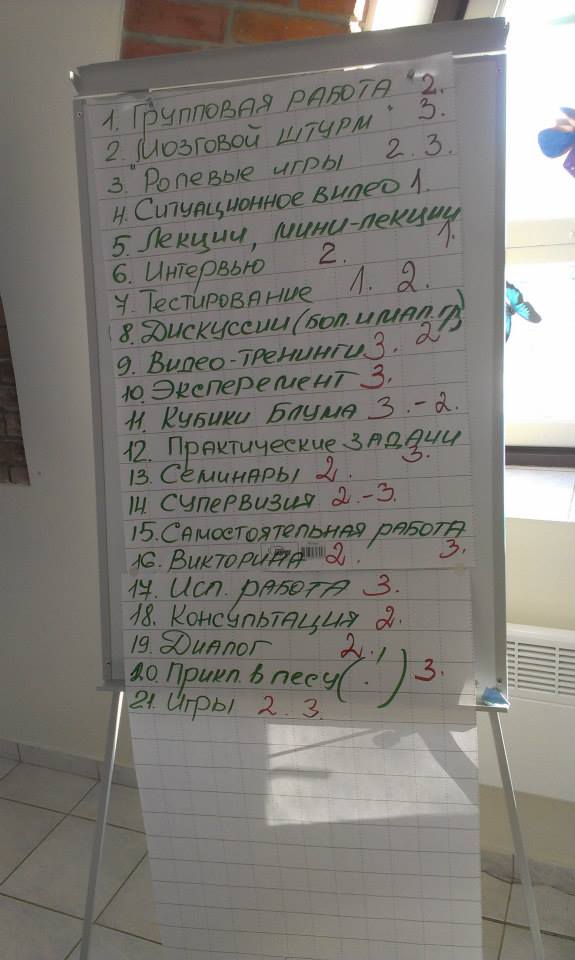 1. Групповая работа 2.
2. "Мозговой штурм" 3.
3. Ролевые игры 2. 3.
4. Ситуационное видео 1.
5. Лекции, мини-лекции 1.
6. Интервью 2.
7. Тестирование 1. 2.
8. Дискуссии (бол. и мал. гр) 2
9. Видео-тренинги 3.
10. Эксперемент 3.
11. Кубики Блума 3.-2.
12. Практические задачи 3.
13. Семинары 2.
14. Супервизия 2.-3.
15. Самостоятельная работа 3.
16. Викторина 2.
17. Исп. работа 3.
18. Консультация 2.
19. Диалог 2.
20. Прикл. в лесу (!) 3.
21. Игры 2. 3.